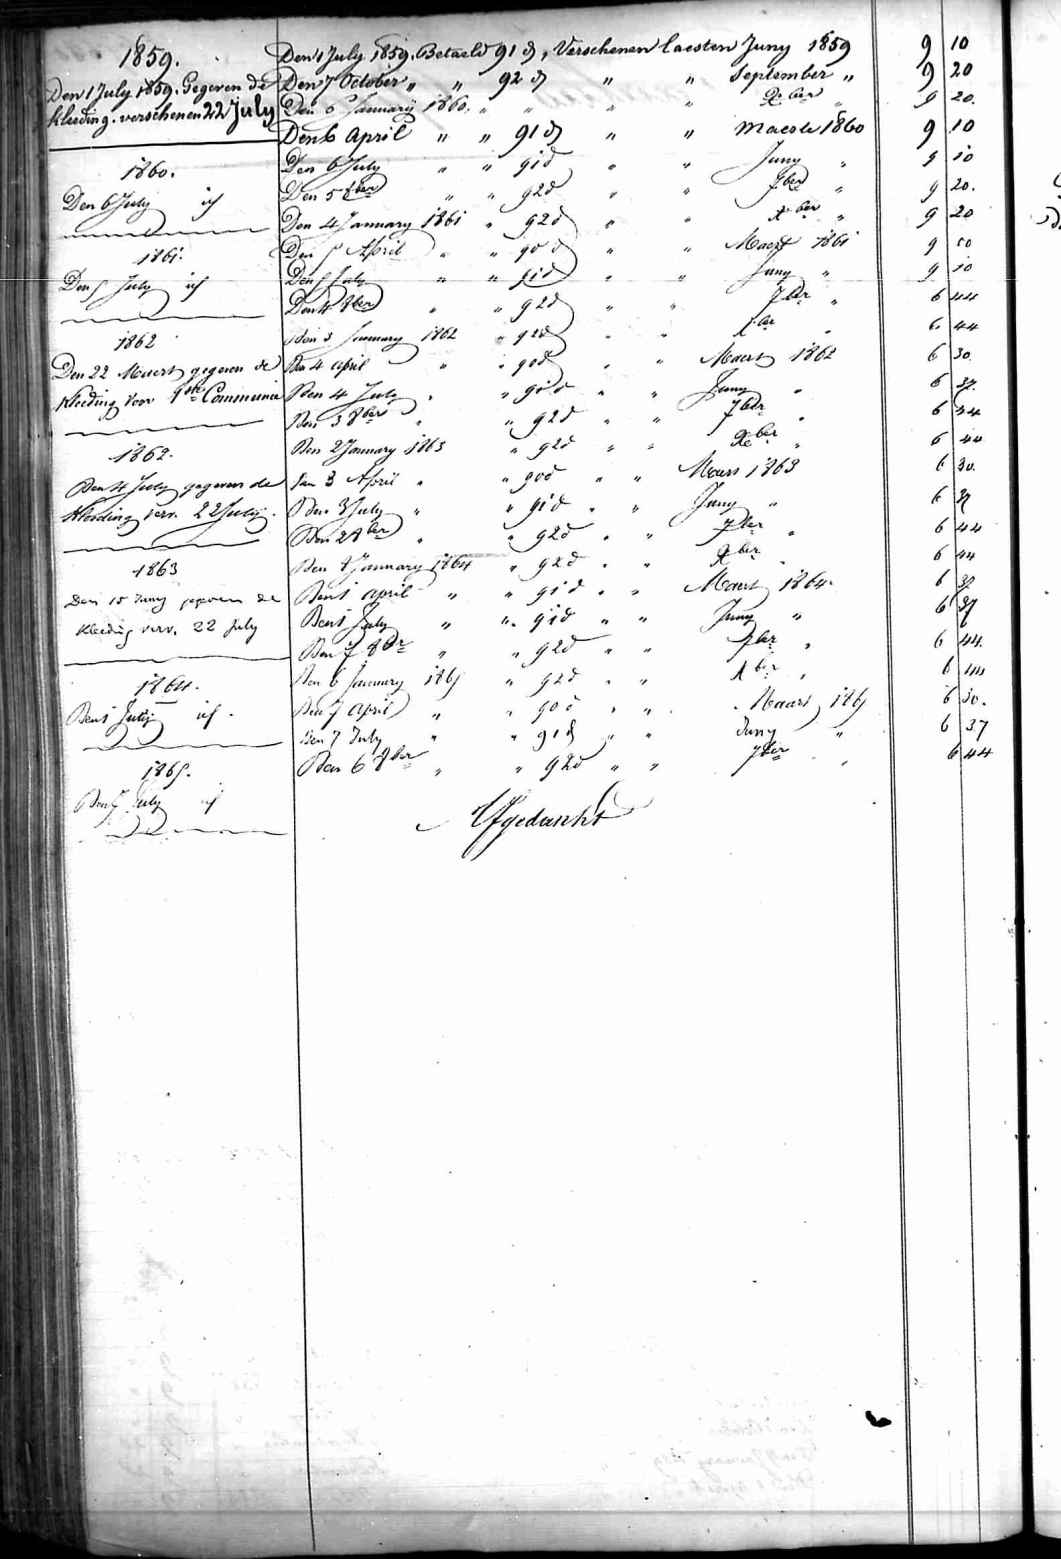 1859.
Den 1 July 1859. Gegeven de
kleeding. verschenen 22 July
1860.
Den 6 July
1861.
Den 5 July
1862
Den 22 Maert gegeven de
Kleeding voor 1ste Communie
1862.
Den 4 July gegeven de
Kleeding verv. 22 July.
1863
Den 15 Juny gegeven de
Kleeding verv. 22 July
1864.
Den 1 July
1865.
Den 7 July
Den 1 July 1859. Betaeld 91 d, Verschenen laesten Juny 1859 9 10
Den 7 October " " 92 d " " September " 9 20
Den 6 January 1860. " " " " Xber " 9 20.
Den 6 April " " 91 d " " Maerte 1860 9 10
Den 6 July " " 91 d " " Juny " 9 10
Den 5 8ber " " 92 d " " 7ber " 9 20.
Den 4 January 1861 " 92 d " " Xber " 9 20
Den 5 April " " 90 d " " Maert 1861 9 00
Den 5 July " " 91 d " " Juny " 9 10
Den 4 8ber " " 92 d " " 7ber " 6 44
Den 3 January 1862 " 92 d " " Xber " 6 44
Den 4 April " " 90 d " " Maert 1862 6 30.
Den 4 July " " 91 d " " Juny " 6 37.
Den 3 8ber " " 92 d " " 7ber " 6 44
Den 2 January 1863 " 92 d " " Xber " 6 44
Den 3 April " " 90 d " " Maers 1863 6 30.
Den 3 July " " 91 d " " Juny " 6 37
Den 2 8ber " " 92 d " " 7ber " 6 44
Den January 1864 " 92 d " " Xber " 6 44
Den 1 April " " 91 d " " Maert 1864. 6 37
Den 1 July " " 91 d " " Juny " 6 37
Den 7 8br " " 92 d " " 7ber " 6 44.
Den 6 January 1865 " 92 d " " Xber " 6 44
Den 7 April " " 90 d " " Maart 1865 6 30.
Den 7 July " " 91 d " " Juny " 6 37
Den 6 8ber " " 92 d " " 7ber " 6 44
Afgedankt